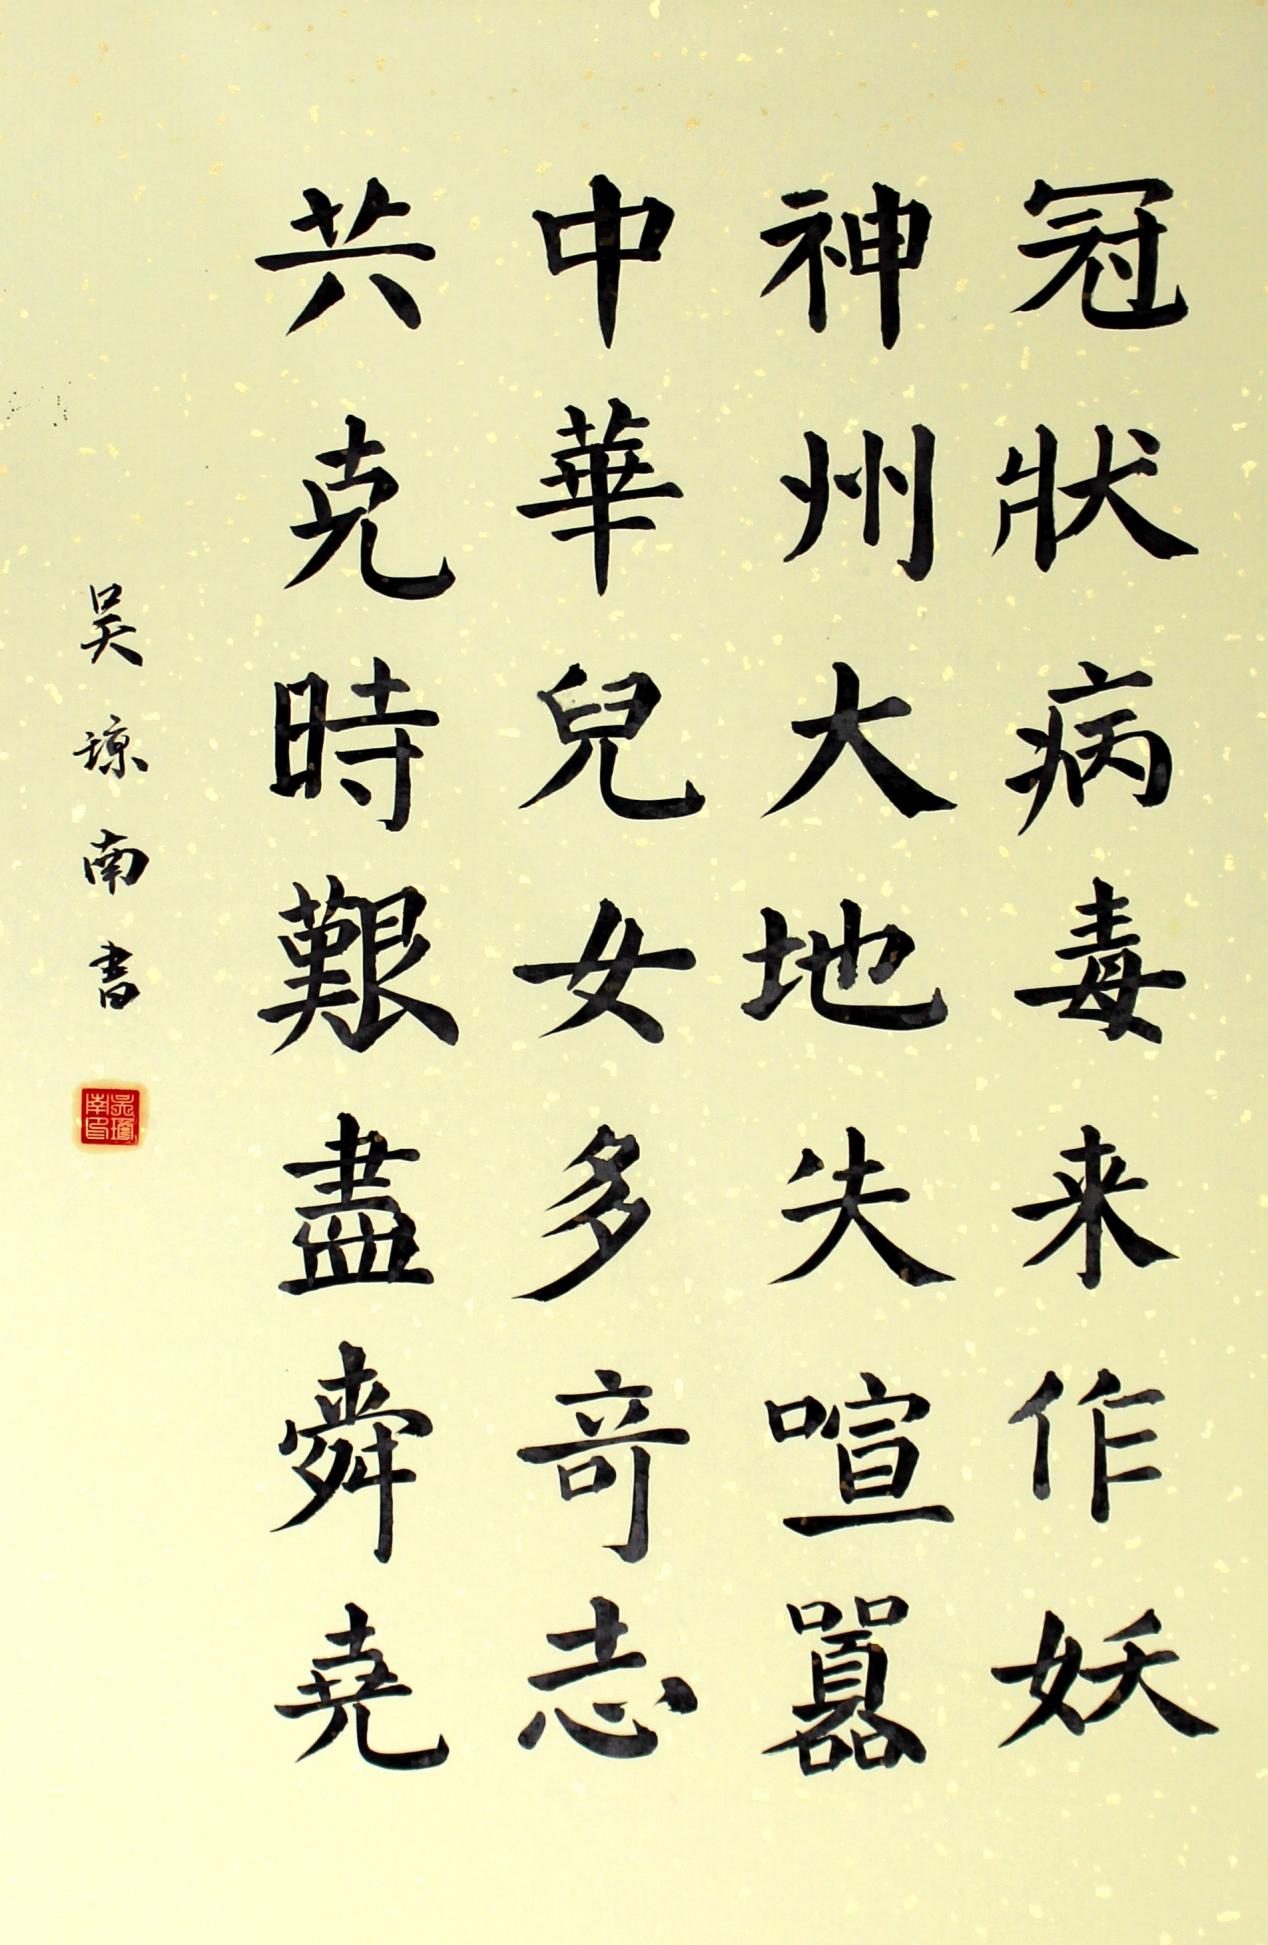 冠狀病毒来作妖
神州大地失喧囂
中華兒女多奇志
共克時艱盡舜堯
吴琼南書
吴瓊南印